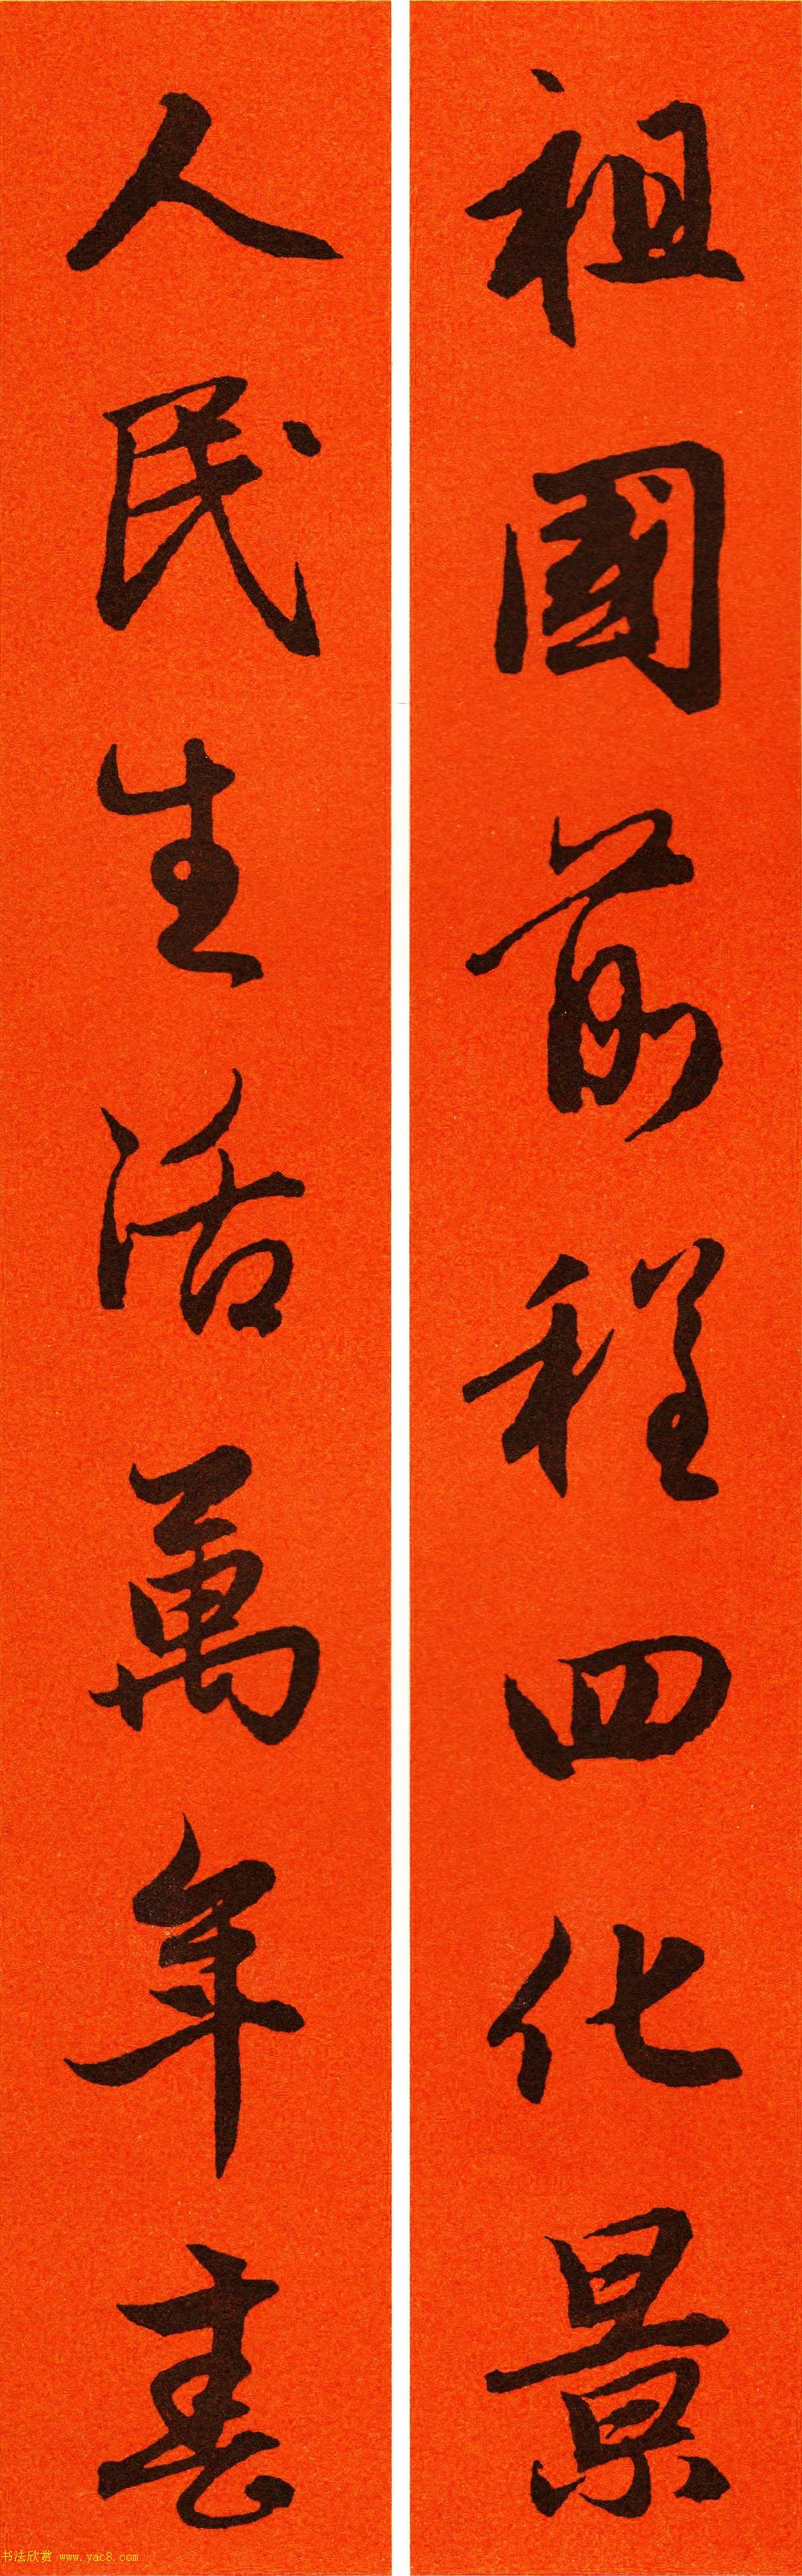 祖國前程四化景
人民生活萬年春
书法欣赏 www.yac8.com